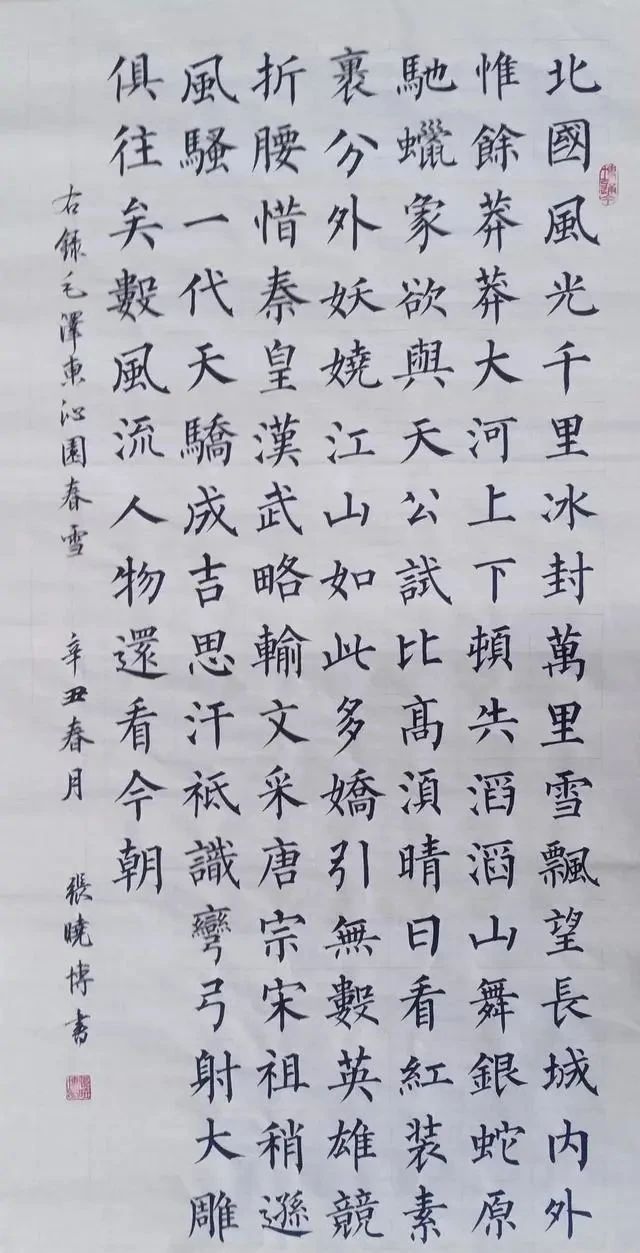 北國風光千里冰封萬里雪飄望長城内外
惟餘莽莽大河上下頓失滔滔山舞銀蛇原
馳蠟象欲與天公試比高須晴日看紅装素
裹分外妖嬈江山如此多嬌引無數英雄競
折腰惜秦皇漢武略輸文采唐宗宋祖稍遜
風騷一代天驕成吉思汗祗識彎弓射大雕
俱往矣數風流人物還看今朝
右錄毛澤東沁園春雪 辛丑春月 張曉博書